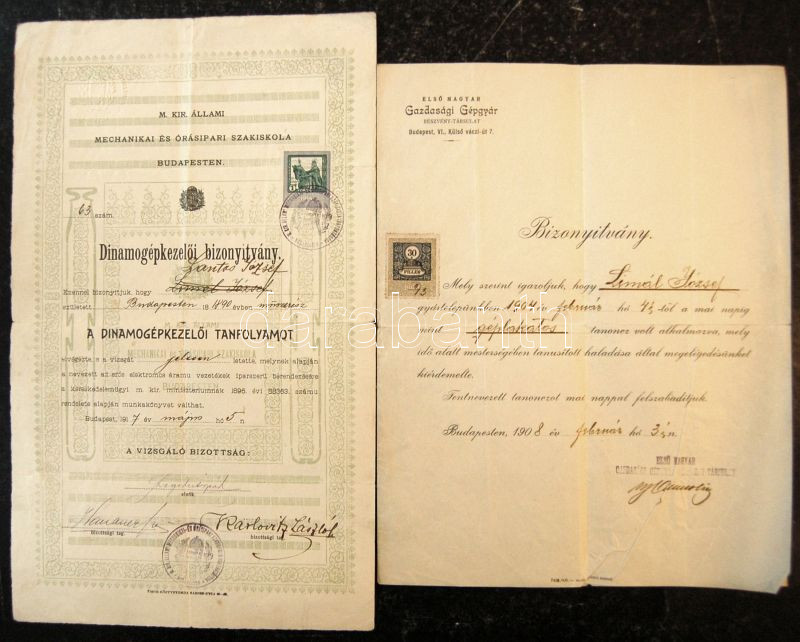 M. KIR. ÁLLAMI
MECHANIKAI ÉS ÓRÁSIPARI SZAKISKOLA
BUDAPESTEN.
63 szám.
Dinamogépkezelői bizonyitvány.
Lantos József
Ezennel bizonyitjuk, hogy Limál József
született Budapesten 1890 évben műszerész
A DINAMOGÉPKEZELŐI TANFOLYAMOT
elvégezte s a vizsgát jelesen letette, melynek alapján
a nevezett az erős elektromos áramu vezetékek iparszerü berendezésére
a kereskedelemügyi m. kir. miniszteriumnak 1895. évi 58363. számu
rendelete alapján munkakönyvet válthat.
Budapest, 1917 év május hó 5 n
A VIZSGÁLÓ BIZOTTSÁG:
elnök
bizottsági tag.
Karlovitz László
bizottsági tag
ELSŐ MAGYAR
Gazdasági Gépgyár
RÉSZVÉNY-TÁRSULAT
Budapest, VI., Külső váczi-út 7.
30
FILLÉR
Bizonyitvány.
Mely szerint igazoljuk, hogy Limál József
gyártelepünkben 1904 év február hó 4én-től a mai napig
mint géplakatos tanoncz volt alkalmazva, mely
idő alatt mesterségében tanusított haladása által megelégedésünket
kiérdemelte.
Fentnevezett tanonczot mai nappal felszabadítjuk.
Budapesten, 1908 év február hó 3án.
ELSŐ MAGYAR
darabanth